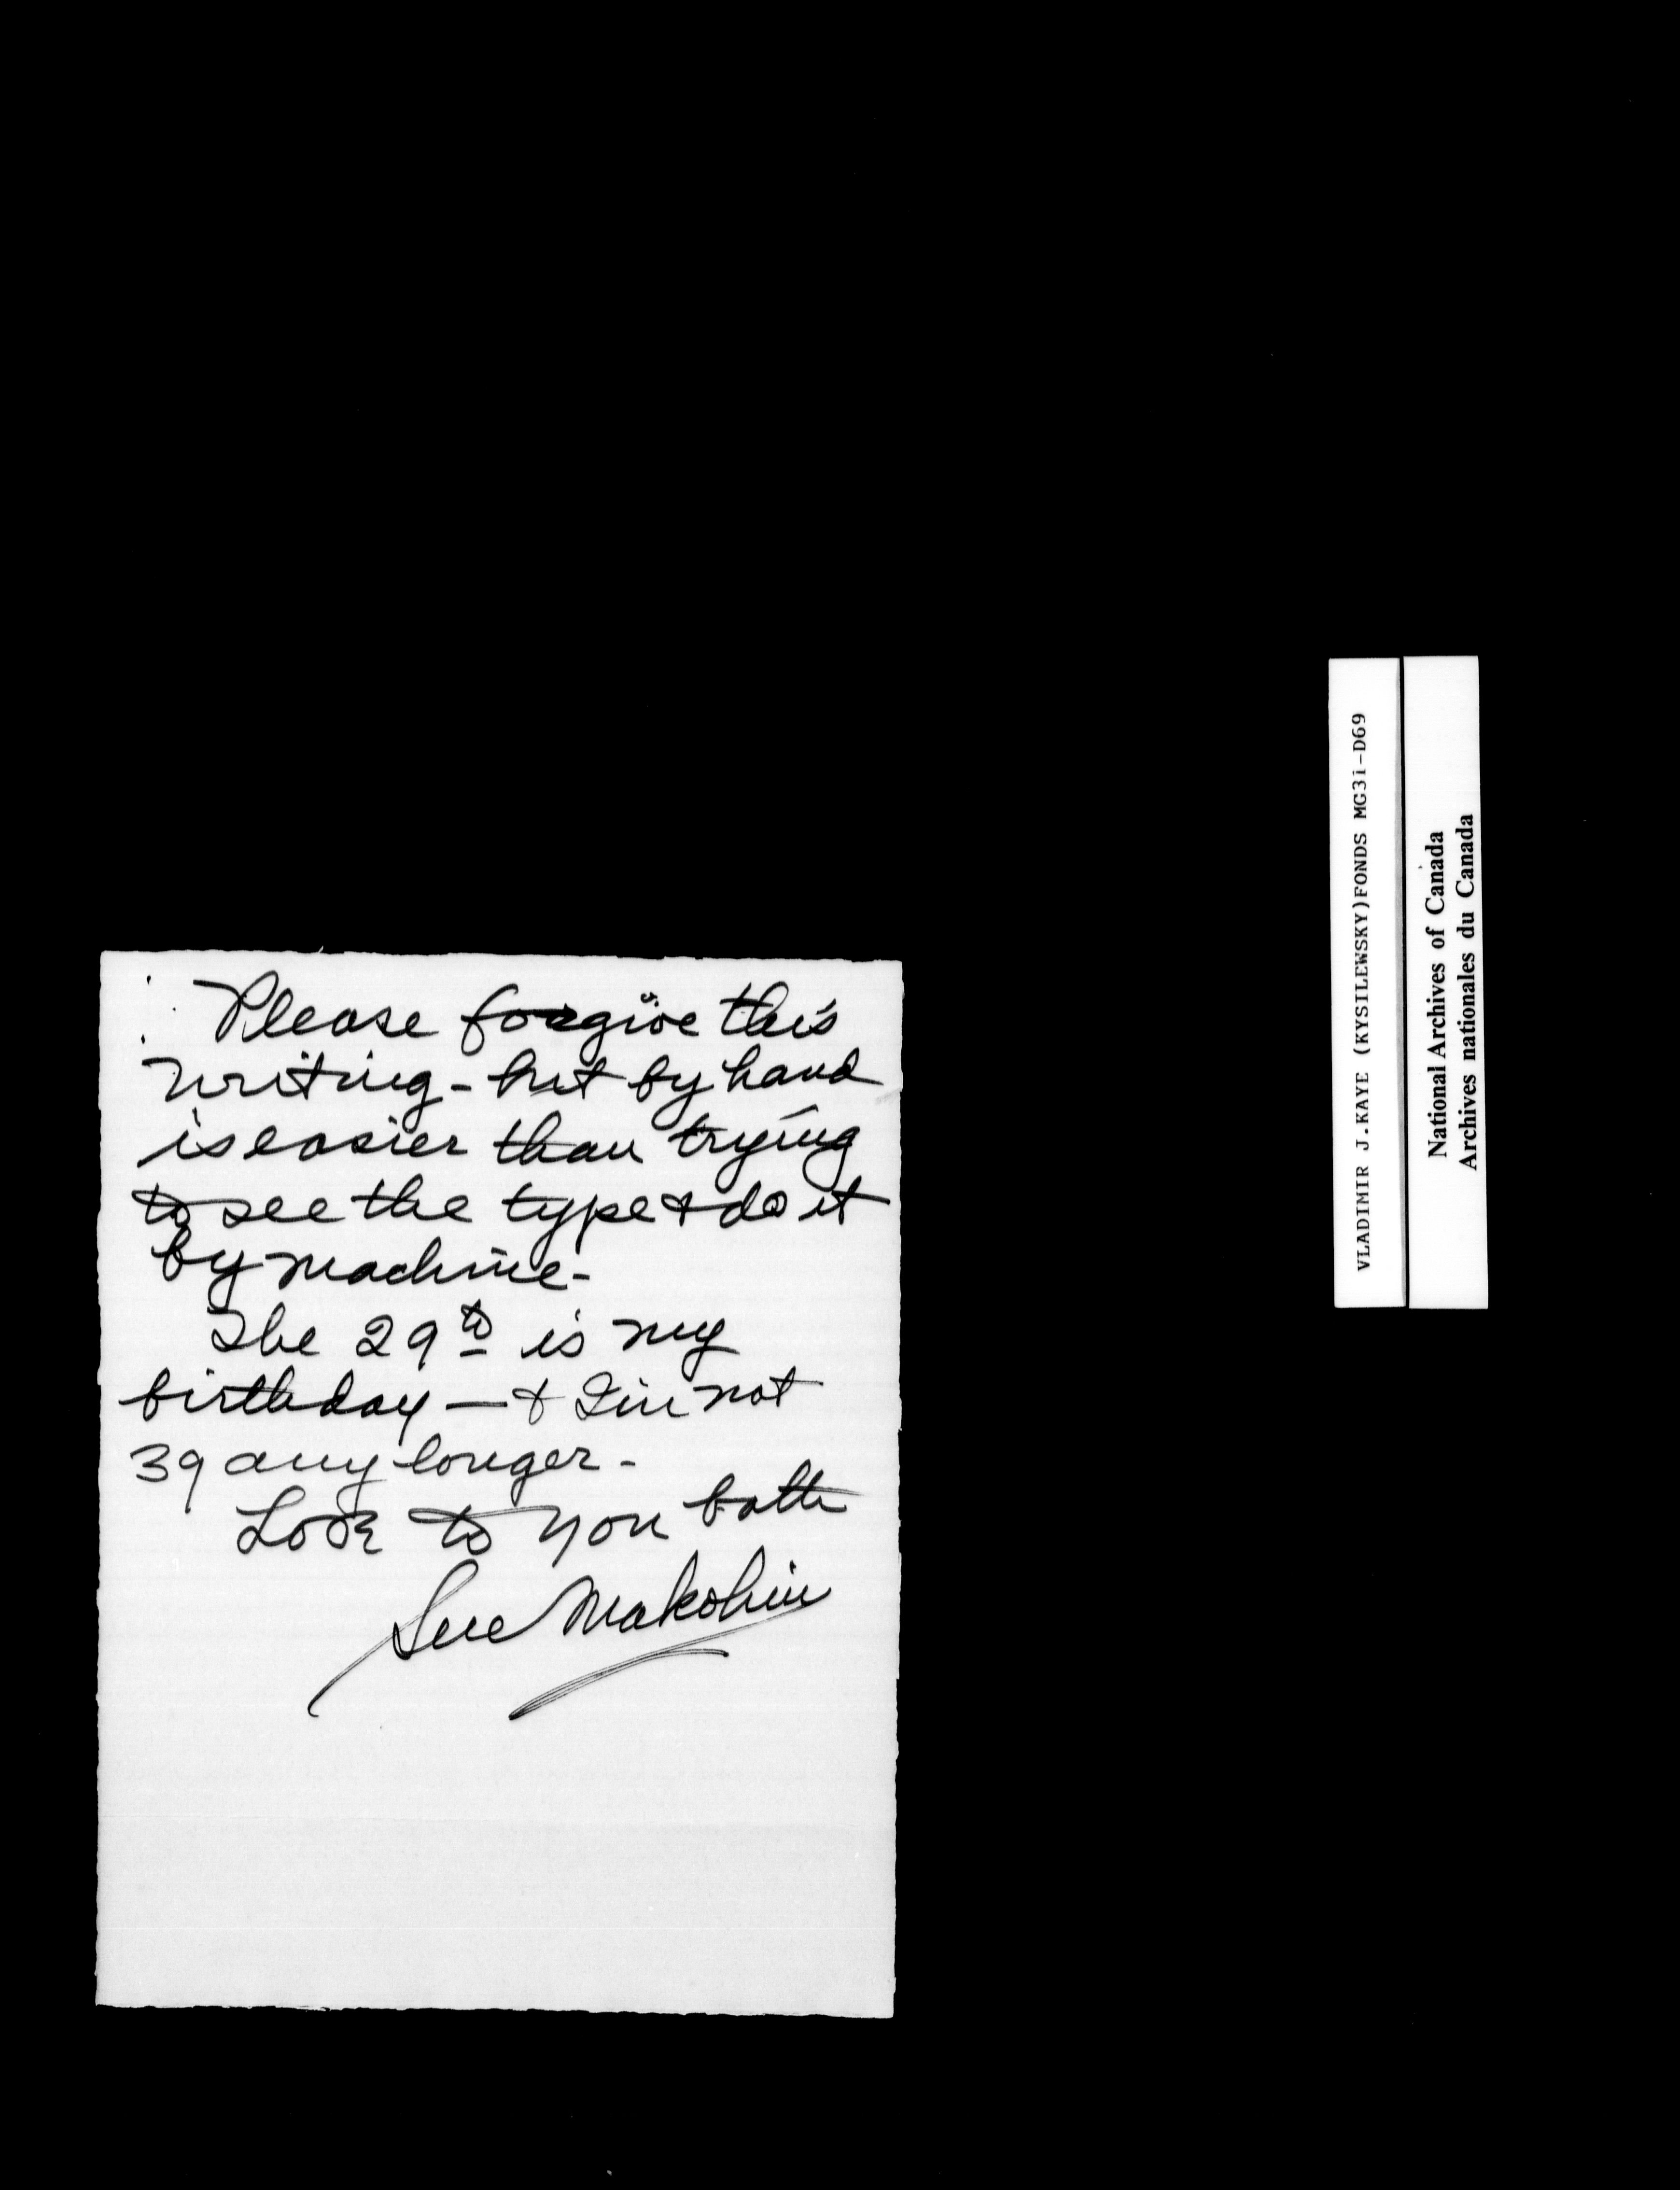 Please forgive this
writing - but by hand
is easier than trying
to see the type & do it
by machine -
The 29th is my
birthday — & I'm not
39 any longer -
Love to you both
Sue Makohin
VLADIMIR J.KAYE (KYSILEWSKY)FONDS MG31-D69
National Archives of Canada
Archives nationales du Canada